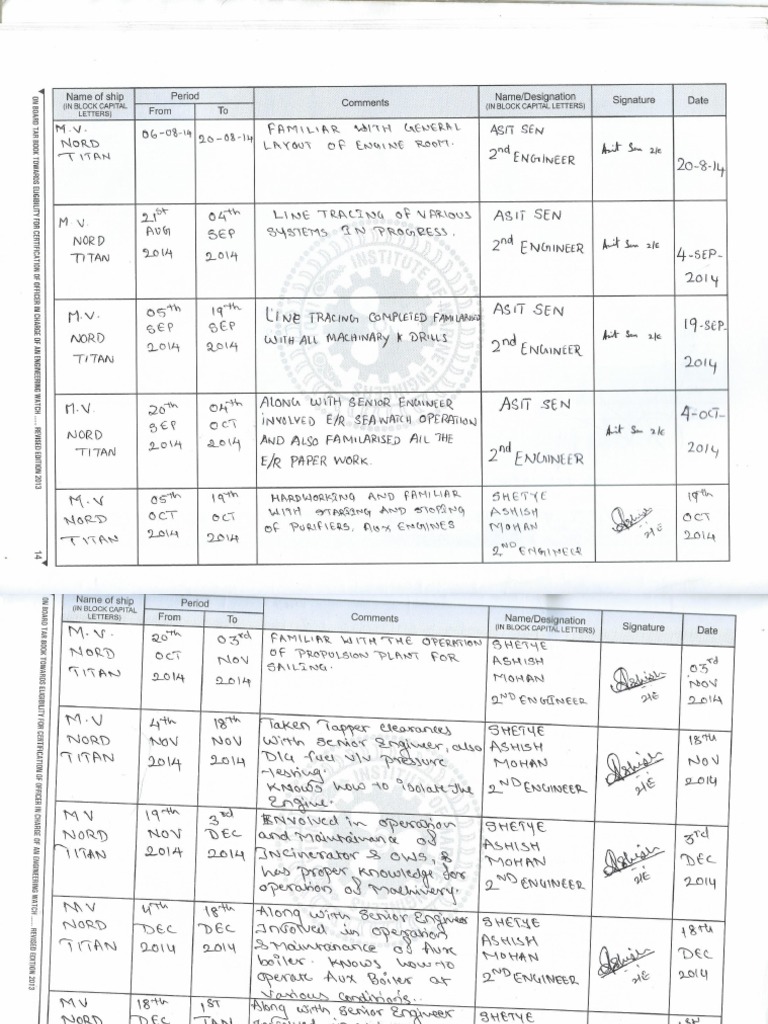 Name of ship
(IN BLOCK CAPITAL LETTERS)
Period
From
To
Comments
Name/Designation
(IN BLOCK CAPITAL LETTERS)
Signature
Date
M.V. NORD TITAN
06-08-14
20-08-14
FAMILIAR WITH GENERAL
LAYOUT OF ENGINE ROOM.
ASIT SEN
2nd ENGINEER
Asit Sen 2/E
20-8-14
M.V. NORD TITAN
21st AUG 2014
04th SEP 2014
LINE TRACING OF VARIOUS
SYSTEMS IN PROGRESS.
ASIT SEN
2nd ENGINEER
Asit Sen 2/E
4-SEP-2014
M.V. NORD TITAN
05th SEP 2014
19th SEP 2014
LINE TRACING COMPLETED FAMILARISED
WITH ALL MACHINARY & DRILLS
ASIT SEN
2nd ENGINEER
Asit Sen 2/E
19-SEP-2014
M.V. NORD TITAN
20th SEP 2014
04th OCT 2014
ALONG WITH SENIOR ENGINEER
INVOLVED E/R SEAWATCH OPERATION
AND ALSO FAMILARISED ALL THE
E/R PAPER WORK.
ASIT SEN
2nd ENGINEER
Asit Sen 2/E
4-OCT-2014
M.V NORD TITAN
05th OCT 2014
19th OCT 2014
HARDWORKING AND FAMILIAR
WITH STARING AND STOPING
OF PURIFIERS, AUX ENGINES
SHETYE ASHISH MOHAN
2ND ENGINEER
Ashish
2/E
19th OCT 2014
ON BOARD TAR BOOK TOWARDS ELIGIBILITY FOR CERTIFICATION OF OFFICER IN CHARGE OF AN ENGINEERING WATCH ..... REVISED EDITION 2013
14
INSTITUTE OF MARINE ENGINEERS
Name of ship
(IN BLOCK CAPITAL LETTERS)
Period
From
To
Comments
Name/Designation
(IN BLOCK CAPITAL LETTERS)
Signature
Date
M.V. NORD TITAN
20th OCT 2014
03rd NOV 2014
FAMILIAR WITH THE OPERATION
OF PROPULSION PLANT FOR
SAILING.
SHETYE ASHISH MOHAN
2ND ENGINEER
Ashish
2/E
03rd NOV 2014
M.V NORD TITAN
4th NOV 2014
18th NOV 2014
Taken Tapper clearances
With Senior Engineer, also
D/G fuel v/v pressure
testing.
KNOWS how to isolate the
Engine.
SHETYE ASHISH MOHAN
2ND ENGINEER
Ashish
2/E
18th NOV 2014
MV NORD TITAN
19th NOV 2014
3rd DEC 2014
Envolved in operation
and Maintainance of
Incinerator & OWS, &
has proper knowledge for
operation of Machinery.
SHETYE ASHISH MOHAN
2ND ENGINEER
Ashish
2/E
3rd DEC 2014
MV NORD TITAN
4th DEC 2014
18th DEC 2014
Along with Senior Engineer
Involved in operation
& Maintanance of Aux
boiler. Knows how to
operate Aux Boiler at
Various conditions..
SHETYE ASHISH MOHAN
2ND ENGINEER
Ashish
2/E
18th DEC 2014
MV NORD
18th DEC
1ST JAN
Along with Senior Engineer
SHETYE
ON BOARD TAR BOOK TOWARDS ELIGIBILITY FOR CERTIFICATION OF OFFICER IN CHARGE OF AN ENGINEERING WATCH ..... REVISED EDITION 2013